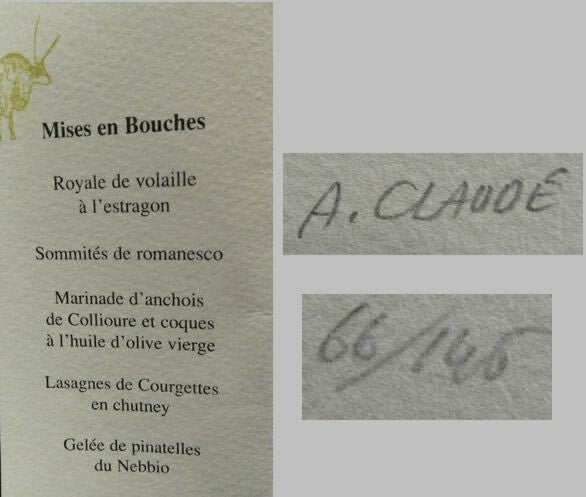 Mises en Bouches
Royale de volaille
à l'estragon
Sommités de romanesco
Marinade d'anchois
de Collioure et coques
à l'huile d'olive vierge
Lasagnes de Courgettes
en chutney
Gelée de pinatelles
du Nebbio
A. CLAUDÉ
66/146